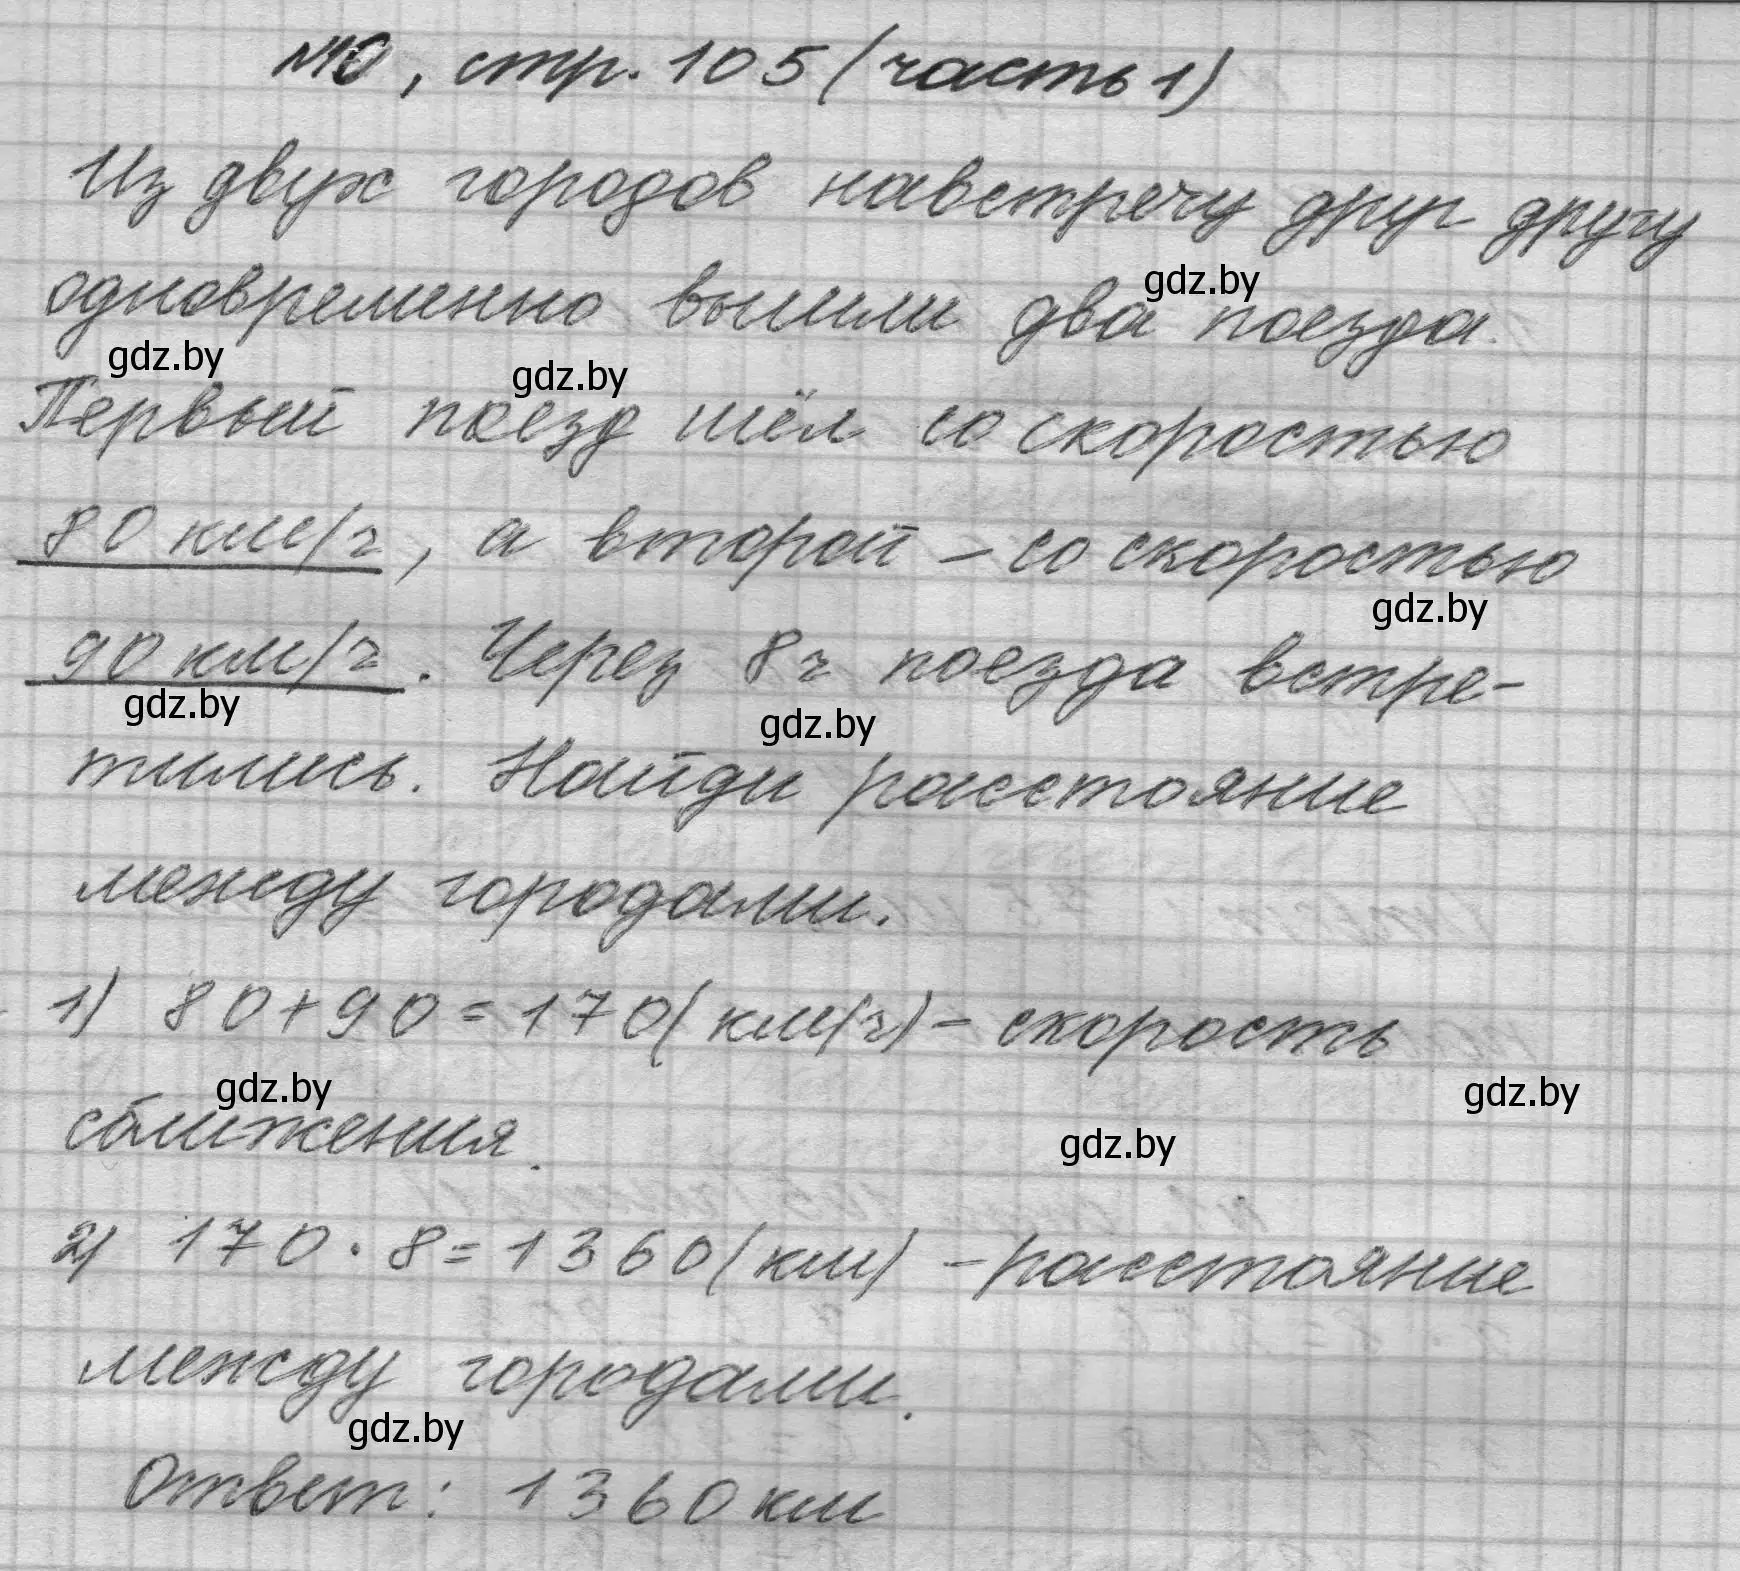 №10, стр. 105 (часть 1)
Из двух городов навстречу друг другу
gdz.by
одновременно вышли два поезда.
gdz.by
gdz.by
Первый поезд шёл со скоростью
80 км/ч, а второй – со скоростью
gdz.by
90 км/ч. Через 8 ч поезда встре-
gdz.by
gdz.by
тились. Найди расстояние
между городами.
1) 80+90=170(км/ч) – скорость
gdz.by
gdz.by
сближения.
gdz.by
2) 170·8=1360(км) – расстояние
между городами.
gdz.by
Ответ: 1360 км